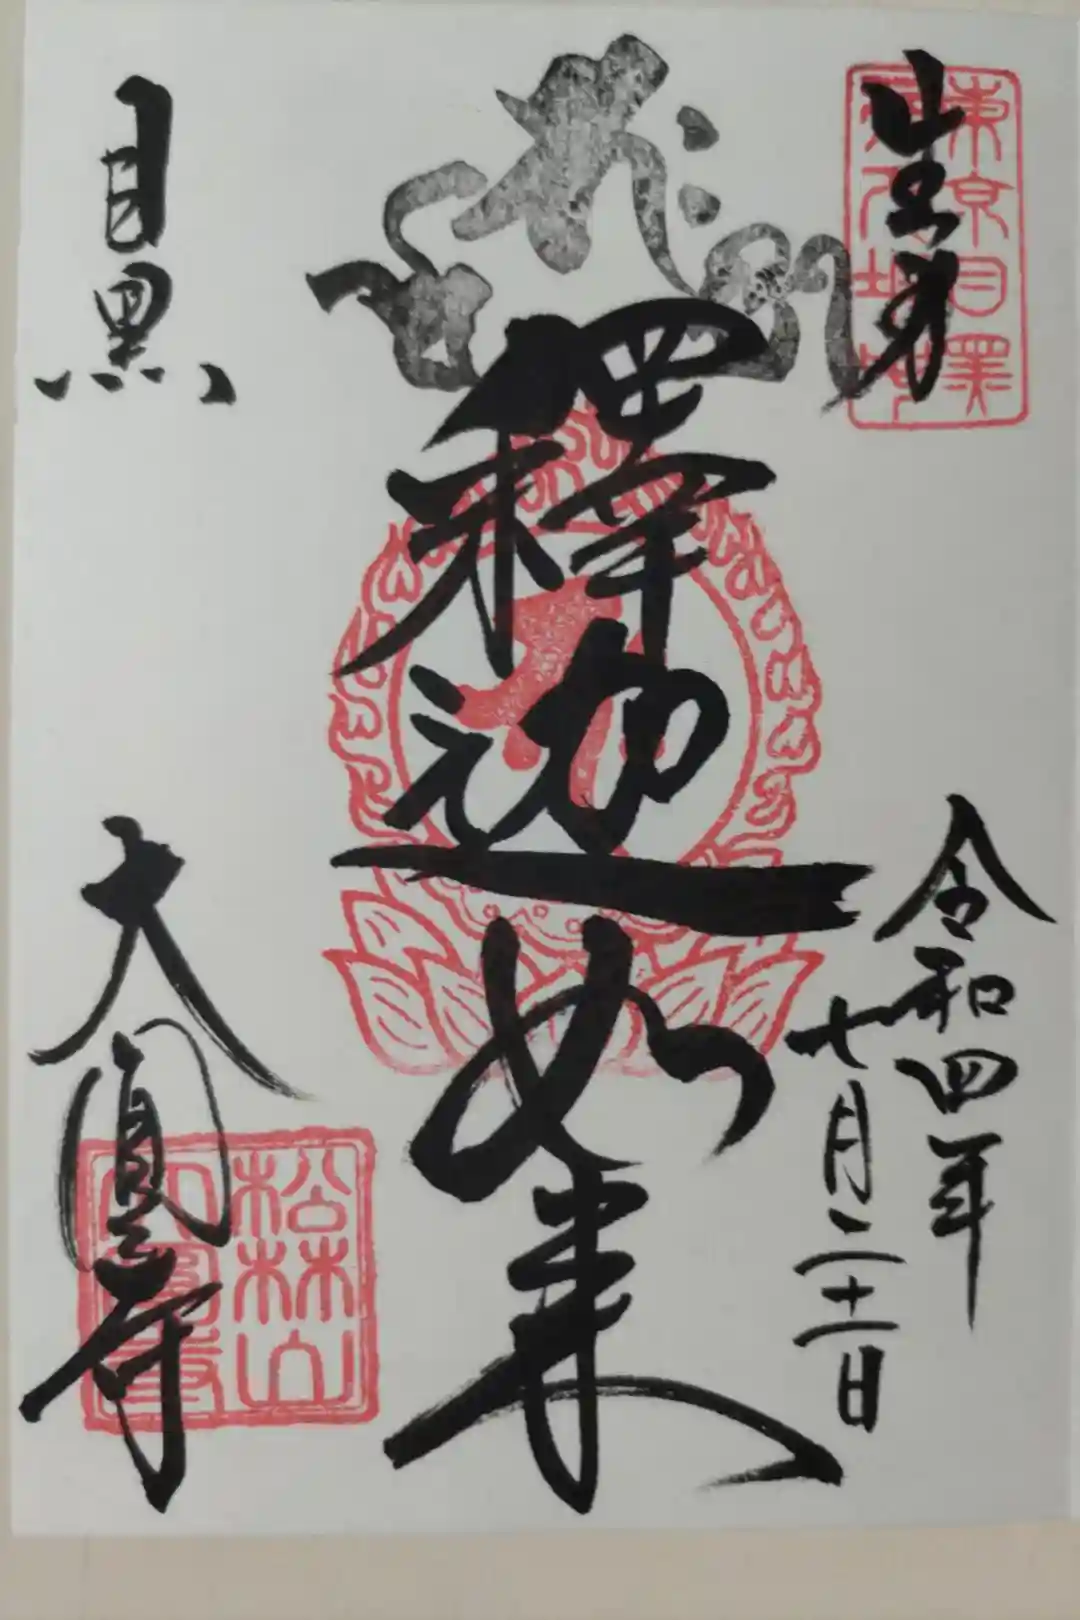 生身
東京目黒
釋迦如来
令和四年
七月二十一日
目黒
大圓寺
松林山
大圓寺